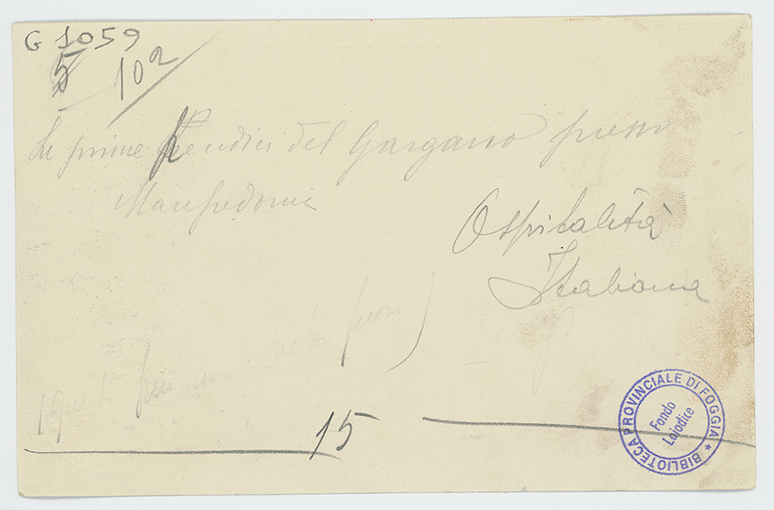 G 1059
5 102
Le prime pendici del Gargano presso
Manfredonia
Ospitalità
Italiana
15
BIBLIOTECA PROVINCIALE DI FOGGIA *
Fondo
Lojodice